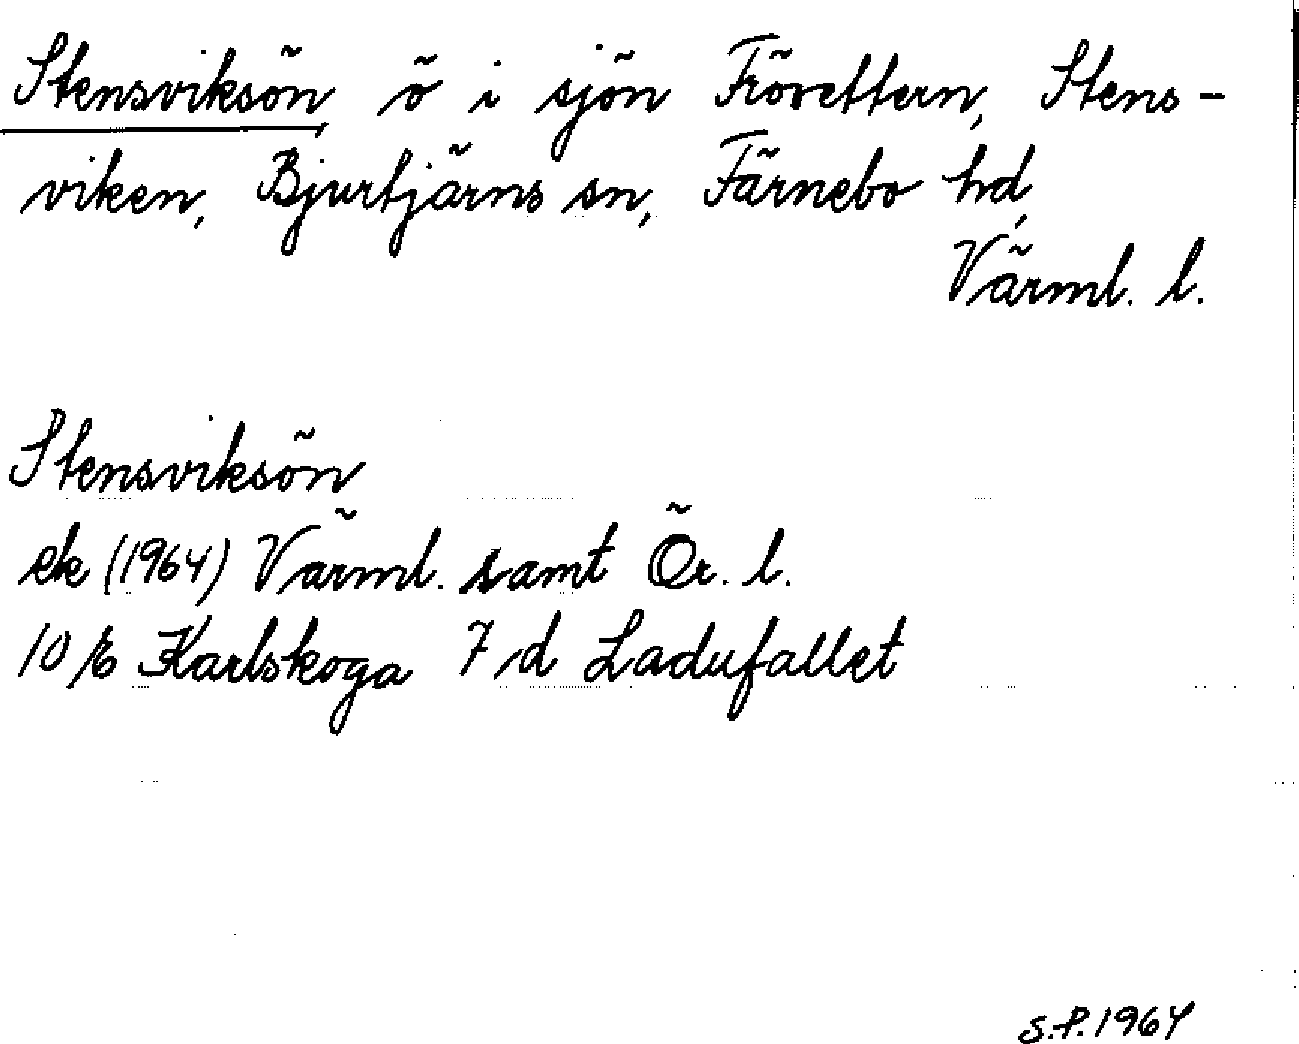 Stensviksön, ö i sjön Frövettern, Stens-
viken, Bjurtjärns sn, Färnebo hd,
Värml. l.
Stensviksön
ek (1964) Värml. samt Ör. l.
10 E Karlskoga 7 d Ladufallet
S.P. 1964